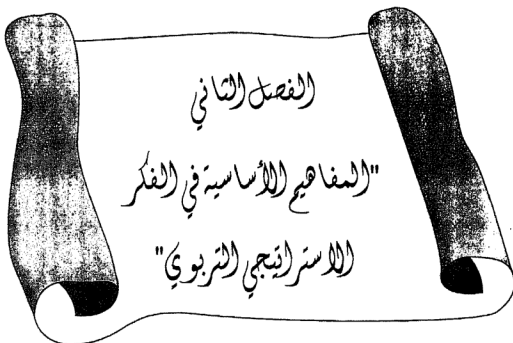 الفصل الثاني
"المفاهيم الأساسية في الفكر
الاستراتيجي التربوي"